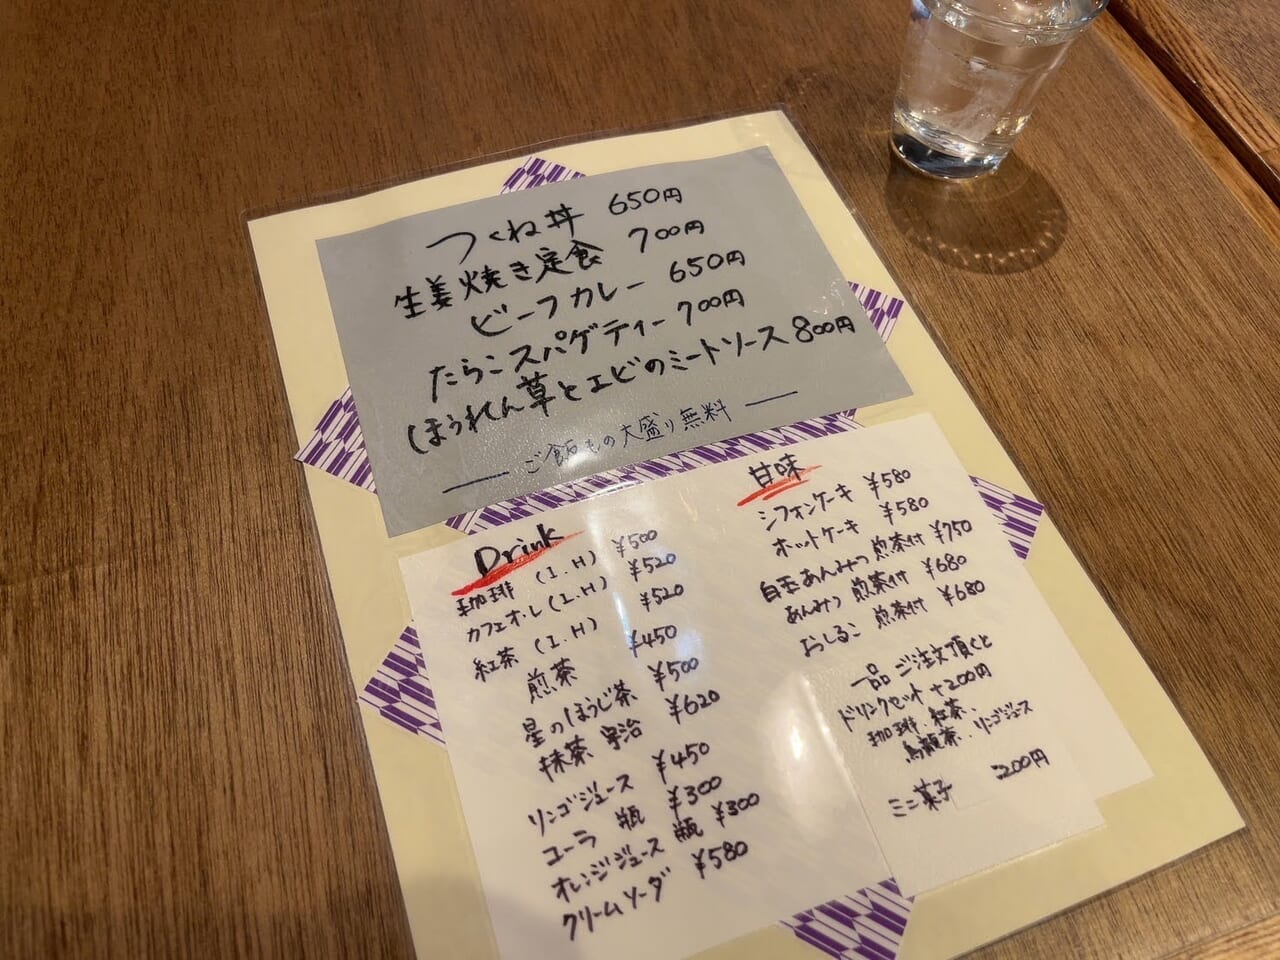 つくね丼 650円
生姜焼き定食 700円
ビーフカレー 650円
たらこスパゲティー 700円
ほうれん草とエビのミートソース 800円
ご飯もの大盛り無料
Drink
珈琲 (I.H) ¥500
カフェオ・レ(I.H) ¥520
紅茶 (I.H) ¥520
煎茶 ¥450
星のほうじ茶 ¥500
抹茶 宇治 ¥620
リンゴジュース ¥450
コーラ 瓶 ¥300
オレンジジュース 瓶 ¥300
クリームソーダ ¥580
甘味
シフォンケーキ ¥580
ホットケーキ ¥580
白玉あんみつ 煎茶付 ¥750
あんみつ 煎茶付 ¥680
おしるこ 煎茶付 ¥680
一品ご注文頂くと
ドリンクセット +200円
珈琲、紅茶、
烏龍茶、リンゴジュース
ミニ菓子 200円